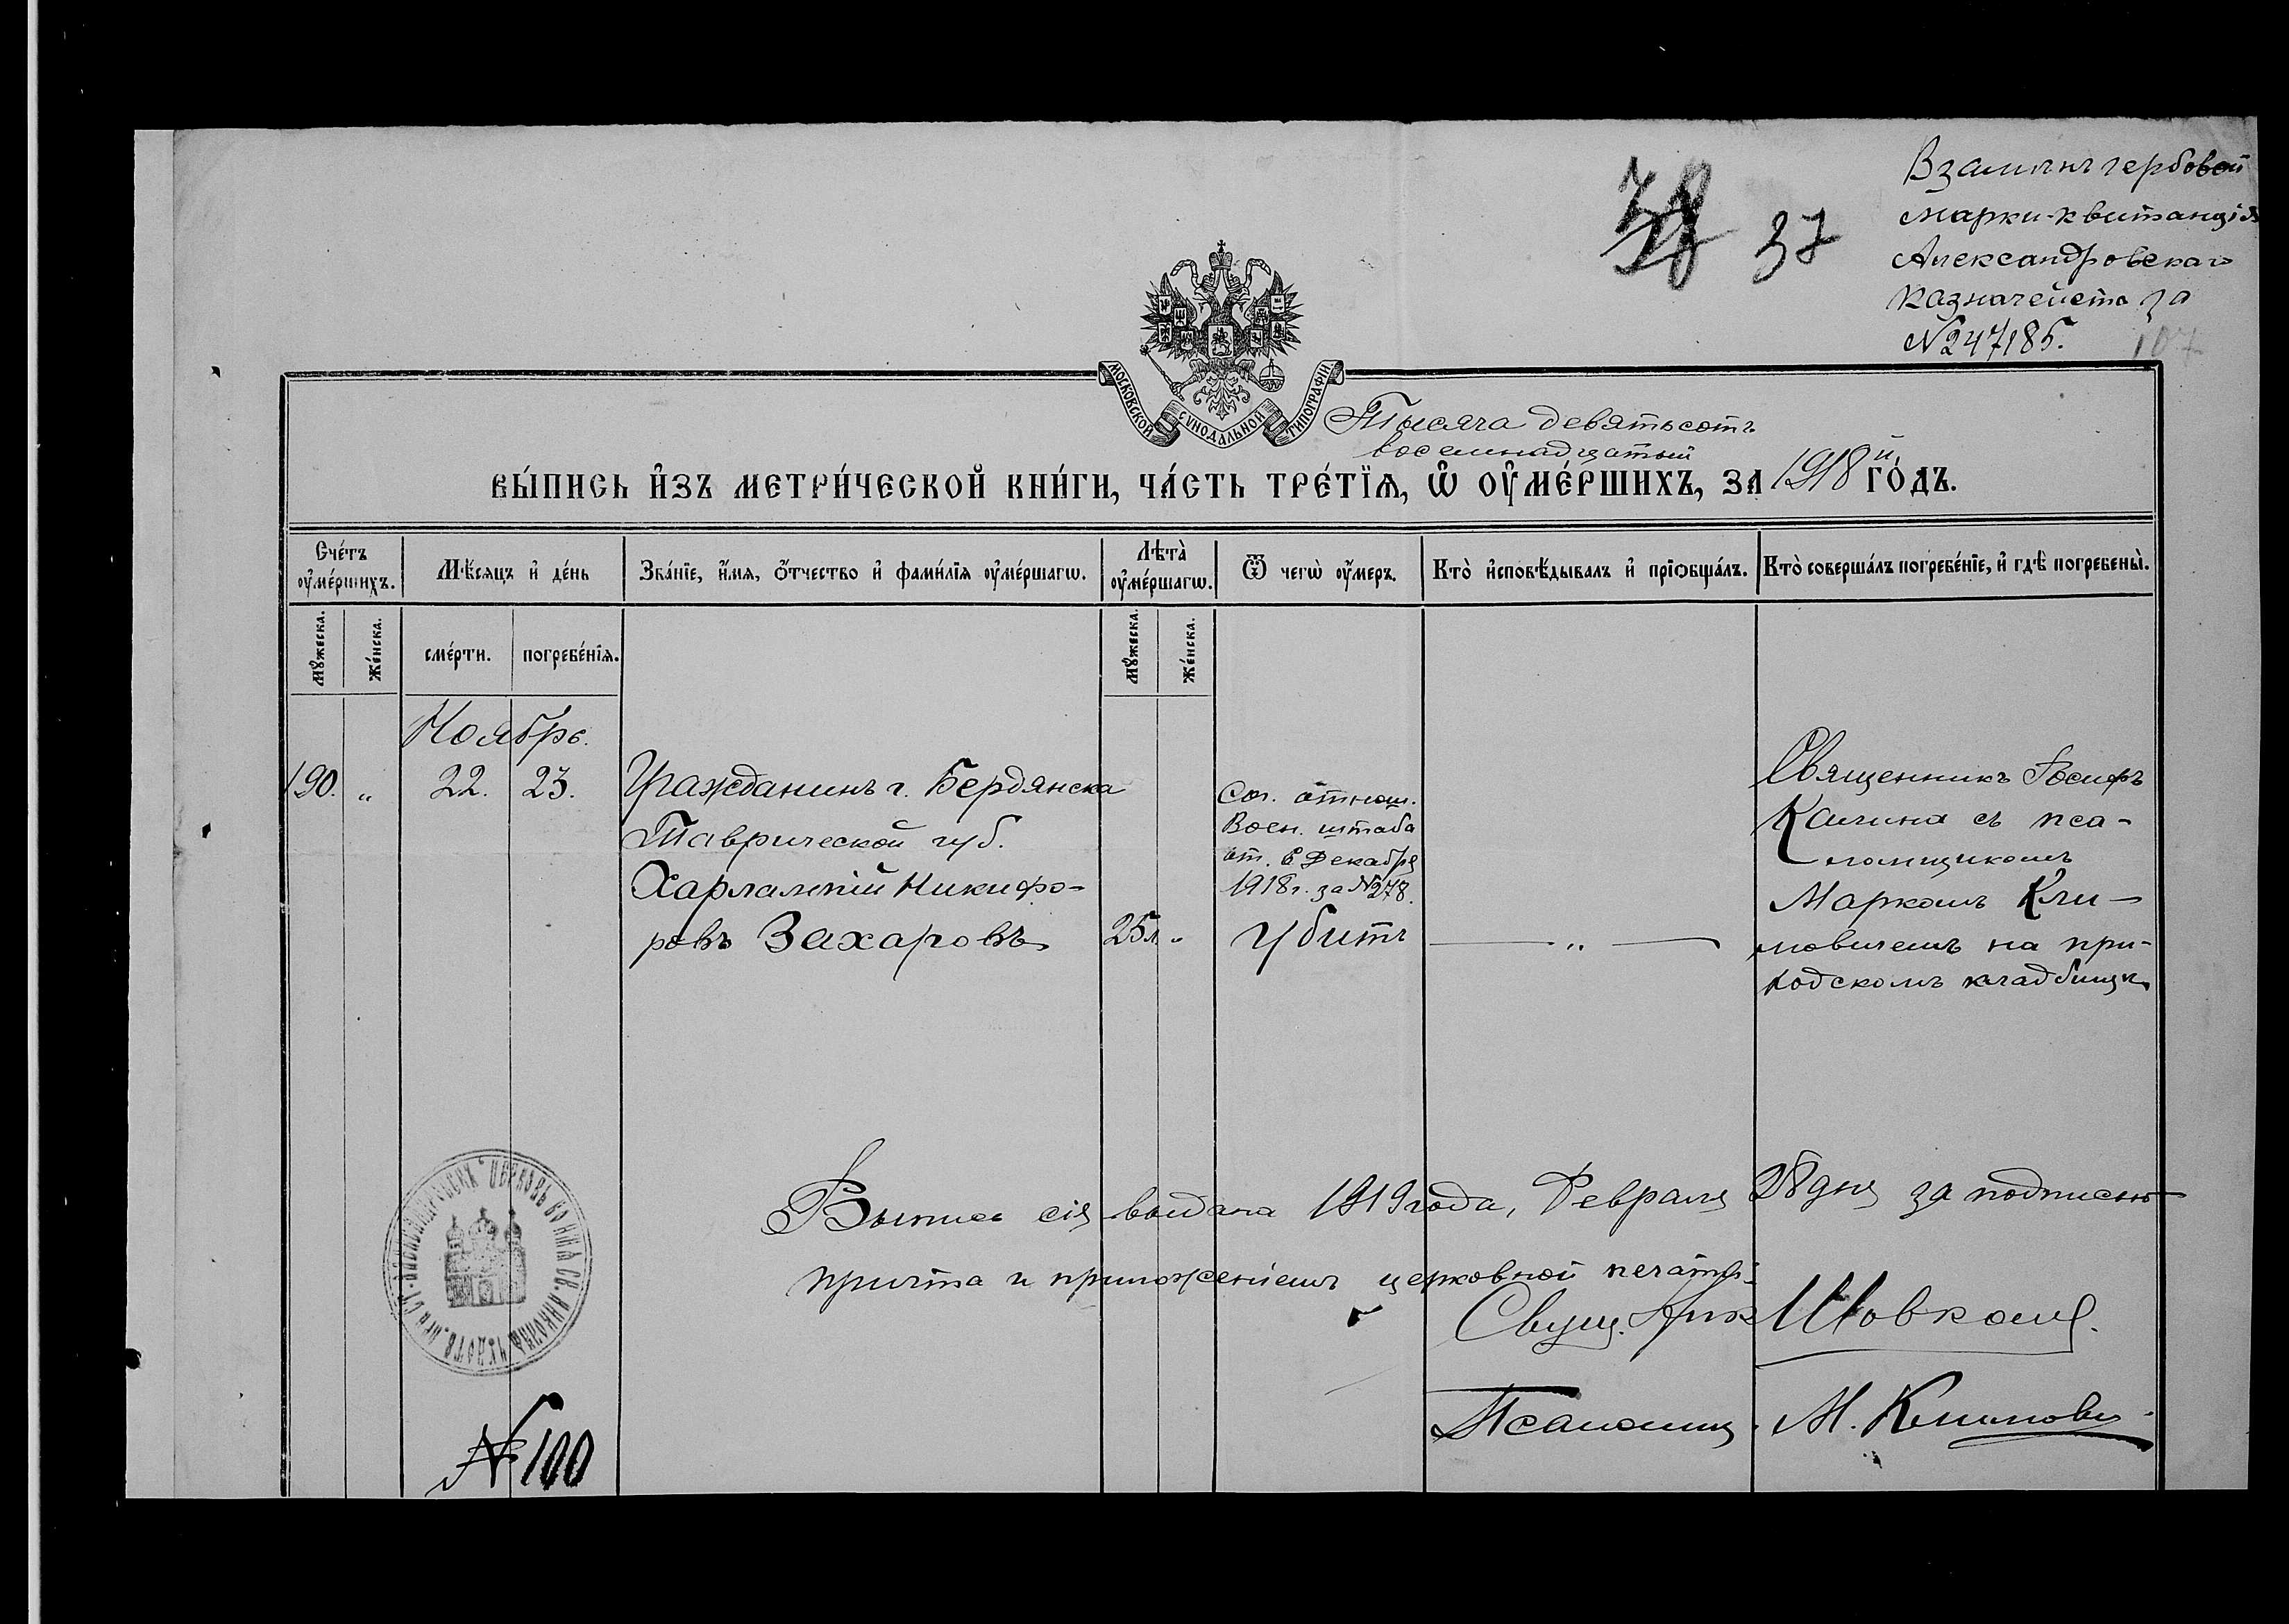 Взамѣнъ гербовой
марки-квитанція
Александровскаго
Казначейста за
№247185.
38 37
107
МОСКОВСКОЙ СѴНОДАЛЬНОЙ ТИПОГРАФІИ
Тысяча девятьсотъ
восемнадцатый
ВЫ́ПИСЬ И҆ЗЪ МЕТРИ́ЧЕСКОЙ КНИ́ГИ, ЧА́СТЬ ТРЕ́ТЇѦ, Ѽ ОУ҆МЕ́РШИХЪ, ЗА 1918й ГО́ДЪ.
Сче́тъ оу҆ме́ршихъ.
Мѣ́сяцъ и҆ де́нь
Зва́нїе, и҆́мѧ, ѻ҆́тчество и҆ фами́лїѧ оу҆ме́ршагѡ.
Лѣта̀ оу҆ме́ршагѡ.
Ѿ чегѡ̀ оу҆́меръ.
Кто̀ и҆сповѣ́дывалъ и҆ прїѡбща́лъ.
Кто̀ соверша́лъ погребе́нїе, и҆ гдѣ̀ погребены̀.
Мꙋ́жеска.
Же́нска.
сме́рти.
погребе́нїѧ.
Мꙋ́жеска.
Же́нска.
Ноябрь.
190. „ 22. 23.
Гражданинъ г. Бердянска
Таврической губ.
Харлампій Никифо-
ровъ Захаровъ
25 л. „
Сог. отнош.
Воен. штаба
от. 6 Декабря
1918 г. за №278.
Убитъ
— „ —
Священникъ Іосифъ
Калина съ пса-
ломщикомъ
Маркомъ Кли-
мовичемъ на при-
ходскомъ кладбищѣ
Выпись сія выдана 1919 года, Февраля 28 дня за подписью
причта и приложеніемъ церковной печати.
Свящ. Шовкопл.
Псаломщ. М. Климович
№ 100